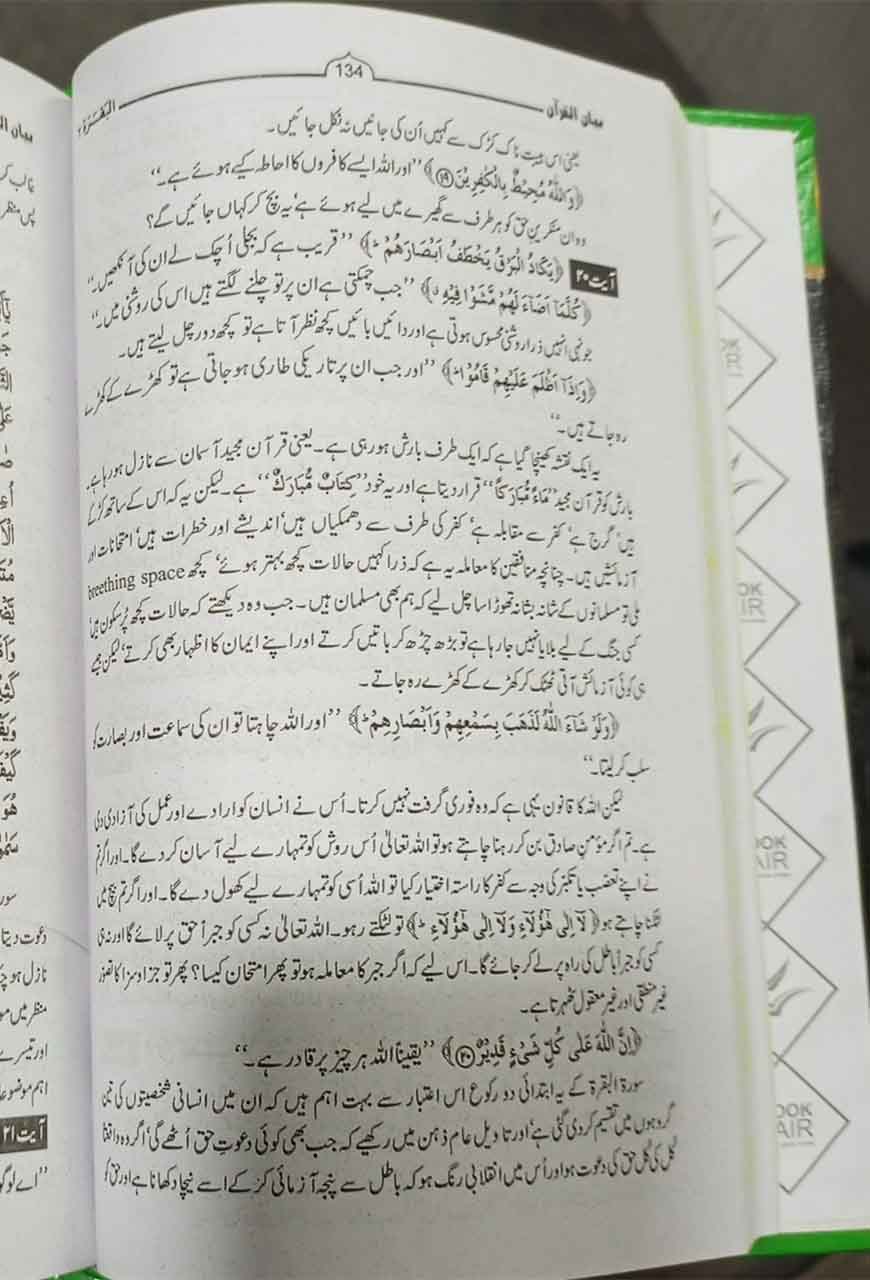 بیان القرآن
134
البقرة ۲
یعنی اس ہیبت ناک کڑک سے کہیں اُن کی جانیں نہ نکل جائیں۔
﴿وَاللّٰهُ مُحِيْطٌ بِالْكٰفِرِيْنَ ⑲﴾ ’’اور اللہ ایسے کافروں کا احاطہ کیے ہوئے ہے۔‘‘
وہ ان منکرینِ حق کو ہر طرف سے گھیرے میں لیے ہوئے ہے‘ یہ بچ کر کہاں جائیں گے؟
آیت ۲۰ ﴿يَكَادُ الْبَرْقُ يَخْطَفُ اَبْصَارَهُمْ ؕ﴾ ’’قریب ہے کہ بجلی اُچک لے ان کی آنکھیں۔‘‘
﴿كُلَّمَآ اَضَآءَ لَهُمْ مَّشَوْا فِيْهِ ۙ﴾ ’’جب چمکتی ہے ان پر تو چلنے لگتے ہیں اس کی روشنی میں۔‘‘
جونہی انہیں ذرا روشنی محسوس ہوتی ہے اور دائیں بائیں کچھ نظر آتا ہے تو کچھ دور چل لیتے ہیں۔
﴿وَاِذَآ اَظْلَمَ عَلَيْهِمْ قَامُوْا ؕ﴾ ’’اور جب ان پر تاریکی طاری ہو جاتی ہے تو کھڑے کے کھڑے
رہ جاتے ہیں۔‘‘
یہ ایک نقشہ کھینچا گیا ہے کہ ایک طرف بارش ہو رہی ہے۔ یعنی قرآن مجید آسمان سے نازل ہو رہا ہے۔
بارش کو قرآن مجید ’’مَآءً مُّبَارَكًا‘‘ قرار دیتا ہے اور یہ خود ’’كِتَابٌ مُّبَارَكٌ‘‘ ہے۔ لیکن یہ کہ اس کے ساتھ کڑکے
ہیں‘ گرج ہے‘ کفر سے مقابلہ ہے‘ کفر کی طرف سے دھمکیاں ہیں‘ اندیشے اور خطرات ہیں‘ امتحانات اور
آزمائشیں ہیں۔ چنانچہ منافقین کا معاملہ یہ ہے کہ ذرا کہیں حالات کچھ بہتر ہوئے‘ کچھ breething space
ملی تو مسلمانوں کے شانہ بشانہ تھوڑا سا چل لیے کہ ہم بھی مسلمان ہیں۔ جب وہ دیکھتے کہ حالات کچھ پُرسکون ہیں‘
کسی جنگ کے لیے بلایا نہیں جا رہا ہے تو بڑھ چڑھ کر باتیں کرتے اور اپنے ایمان کا اظہار بھی کرتے‘ لیکن جیسے
ہی کوئی آزمائش آتی ٹھٹک کر کھڑے کے کھڑے رہ جاتے۔
﴿وَلَوْ شَآءَ اللّٰهُ لَذَهَبَ بِسَمْعِهِمْ وَاَبْصَارِهِمْ ؕ﴾ ’’اور اللہ چاہتا تو ان کی سماعت اور بصارت کو
سلب کر لیتا۔‘‘
لیکن اللہ کا قانون یہی ہے کہ وہ فوری گرفت نہیں کرتا۔ اُس نے انسان کو ارادے اور عمل کی آزادی دی
ہے۔ تم اگر مؤمن صادق بن کر رہنا چاہتے ہو تو اللہ تعالیٰ اُس روش کو تمہارے لیے آسان کر دے گا۔ اور اگر تم
نے اپنے تعصب یا تکبر کی وجہ سے کفر کا راستہ اختیار کیا تو اللہ اُسی کو تمہارے لیے کھول دے گا۔ اور اگر تم بیچ میں
لٹکنا چاہتے ہو ﴿لَآ اِلٰى هٰٓؤُلَآءِ وَلَآ اِلٰى هٰٓؤُلَآءِ ؕ﴾ تو لٹکتے رہو۔ اللہ تعالیٰ نہ کسی کو جبراً حق پر لائے گا اور نہ ہی
کسی کو جبراً باطل کی راہ پر لے کر جائے گا۔ اس لیے کہ اگر جبر کا معاملہ ہو تو پھر امتحان کیسا؟ پھر تو جزا و سزا کا تصور
غیر منطقی اور غیر معقول ٹھہرتا ہے۔
﴿اِنَّ اللّٰهَ عَلٰى كُلِّ شَىْءٍ قَدِيْرٌ ⑳﴾ ’’یقیناً اللہ ہر چیز پر قادر ہے۔‘‘
سورۃ البقرۃ کے یہ ابتدائی دو رکوع اس اعتبار سے بہت اہم ہیں کہ ان میں انسانی شخصیتوں کی تین
گروہوں میں تقسیم کر دی گئی ہے‘ اور تاویل عام ذہن میں رکھیے کہ جب بھی کوئی دعوتِ حق اُٹھے گی‘ اگر وہ واقعتاً
کُل کی کُل حق کی دعوت ہو اور اُس میں انقلابی رنگ ہو کہ باطل سے پنجہ آزمائی کر کے اسے نیچا دکھانا ہے اور حق کو
دعوت دیتا
نازل ہو چکا
منظر میں
اور تیسرے
اہم موضوعات
آیت ۲۱
’’اے لوگو
OOK
AIR